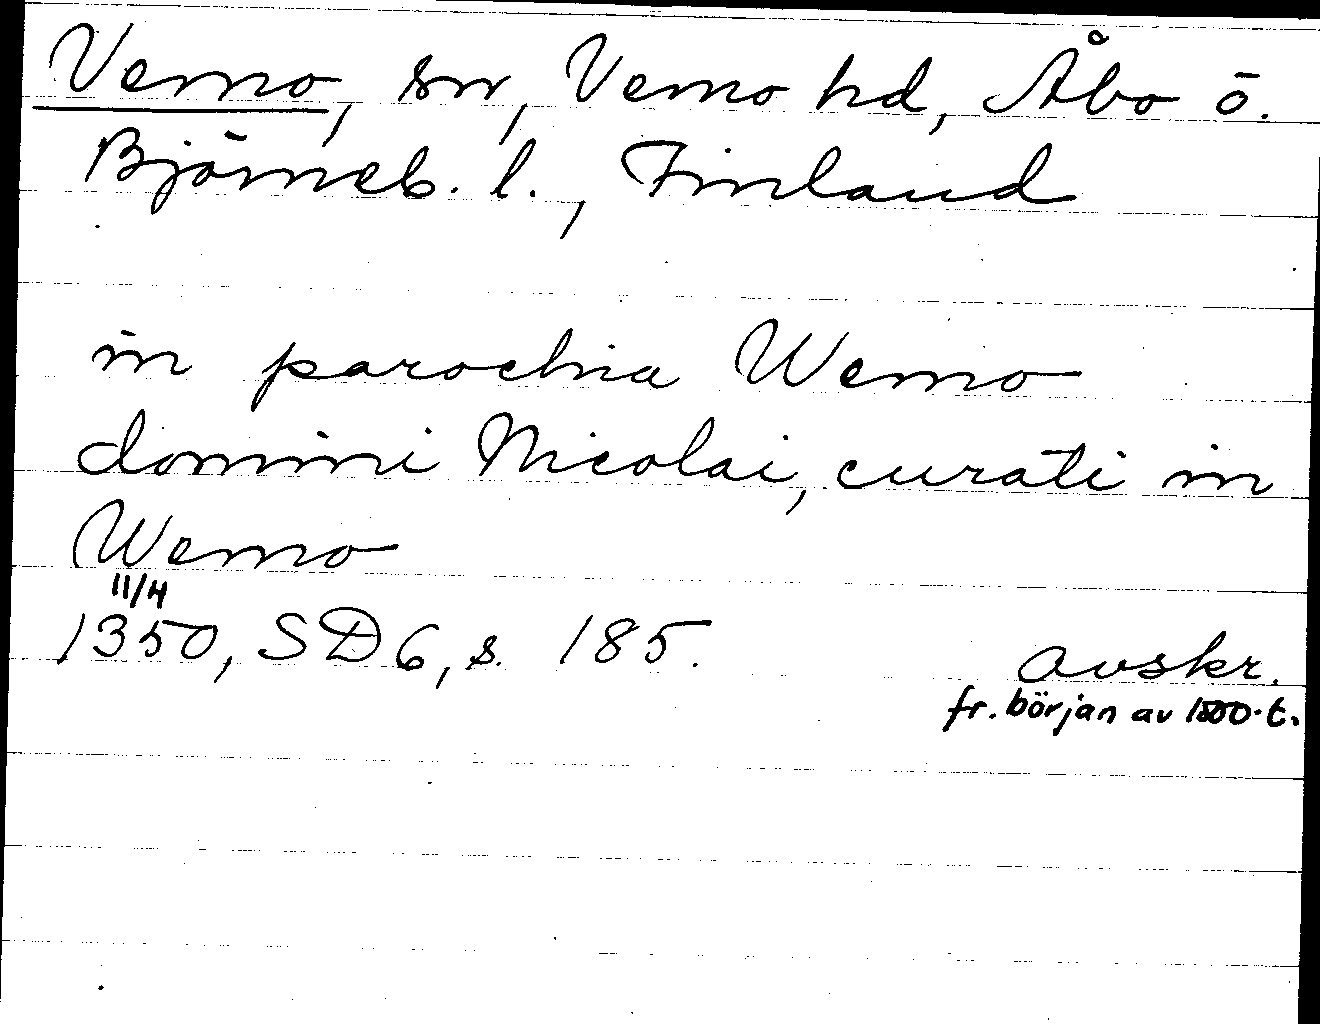 Vemo, sn, Vemo hd, Åbo o.
Björneb. l., Finland
in parochia Wemo
domini Nicolai, curati in
Wemo
11/4
1350, SD 6, s. 185. avskr.
fr. början av 1500-t.